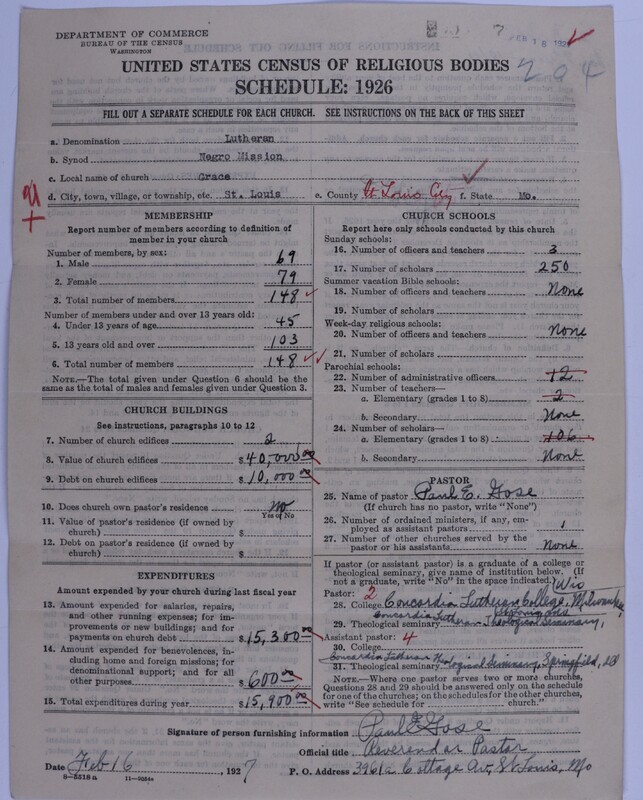 DEPARTMENT OF COMMERCE
BUREAU OF THE CENSUS
WASHINGTON
7 FEB 18 192
UNITED STATES CENSUS OF RELIGIOUS BODIES
204
SCHEDULE: 1926
FILL OUT A SEPARATE SCHEDULE FOR EACH CHURCH. SEE INSTRUCTIONS ON THE BACK OF THIS SHEET
a. Denomination Lutheran
b. Synod Negro Mission
c. Local name of church Grace
d. City, town, village, or township, etc. St. Louis e. County St Louis City f. State Mo.
MEMBERSHIP
Report number of members according to definition of
member in your church
Number of members, by sex:
1. Male 69
2. Female 79
3. Total number of members 148
Number of members under and over 13 years old:
4. Under 13 years of age 45
5. 13 years old and over 103
6. Total number of members 148
NOTE.—The total given under Question 6 should be
same as the total of males and females given under Question 3.
CHURCH BUILDINGS
See instructions, paragraphs 10 to 12
7. Number of church edifices 2
8. Value of church edifices $40,000 00
9. Debt on church edifices $10,000 00
10. Does church own pastor's residence No
Yes or No
11. Value of pastor's residence (if owned by
church) $
12. Debt on pastor's residence (if owned by
church) $
EXPENDITURES
Amount expended by your church during last fiscal year
13. Amount expended for salaries, repairs,
and other running expenses; for im-
provements or new buildings; and for
payments on church debt $15,300 00
14. Amount expended for benevolences,
including home and foreign missions; for
denominational support; and for all
other purposes $600 00
15. Total expenditures during year $15,900 00
CHURCH SCHOOLS
Report here only schools conducted by this church
Sunday schools:
16. Number of officers and teachers 3
17. Number of scholars 250
Summer vacation Bible schools:
18. Number of officers and teachers None
19. Number of scholars
Week-day religious schools:
20. Number of officers and teachers None
21. Number of scholars
Parochial schools:
22. Number of administrative officers 12
23. Number of teachers—
a. Elementary (grades 1 to 8) 2
b. Secondary None
24. Number of scholars—
a. Elementary (grades 1 to 8) 106
b. Secondary None
PASTOR
25. Name of pastor Paul E. Gose
(If church has no pastor, write "None")
26. Number of ordained ministers, if any, em-
ployed as assistant pastors 1
27. Number of other churches served by the
pastor or his assistants None
If pastor (or assistant pastor) is a graduate of a college or
theological seminary, give name of institution below. (If
not a graduate, write "No" in the space indicated.)
Pastor: 2 Wis
28. College Concordia Lutheran College, Milwaukee,
29. Theological seminary Concordia Lutheran Theological Seminary,
Assistant pastor: 4
30. College
Concordia Lutheran Theological Seminary, Springfield, Ill
31. Theological seminary
NOTE.—Where one pastor serves two or more churches,
Questions 28 and 29 should be answered only on the schedule
for one of the churches; on the schedules for the other churches,
write "See schedule for church."
Signature of person furnishing information Paul E Gose
Official title Reverend or Pastor
Date Feb 16, 1927 P. O. Address 3961a Cottage Av, St Louis, Mo
8-5518 a